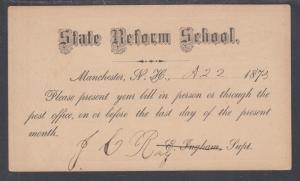 State Reform School.
Manchester, N. H., 22 1873
Please present your bill in person or through the
post office, on or before the last day of the present
month.
J C Ray E. Ingham, Supt.